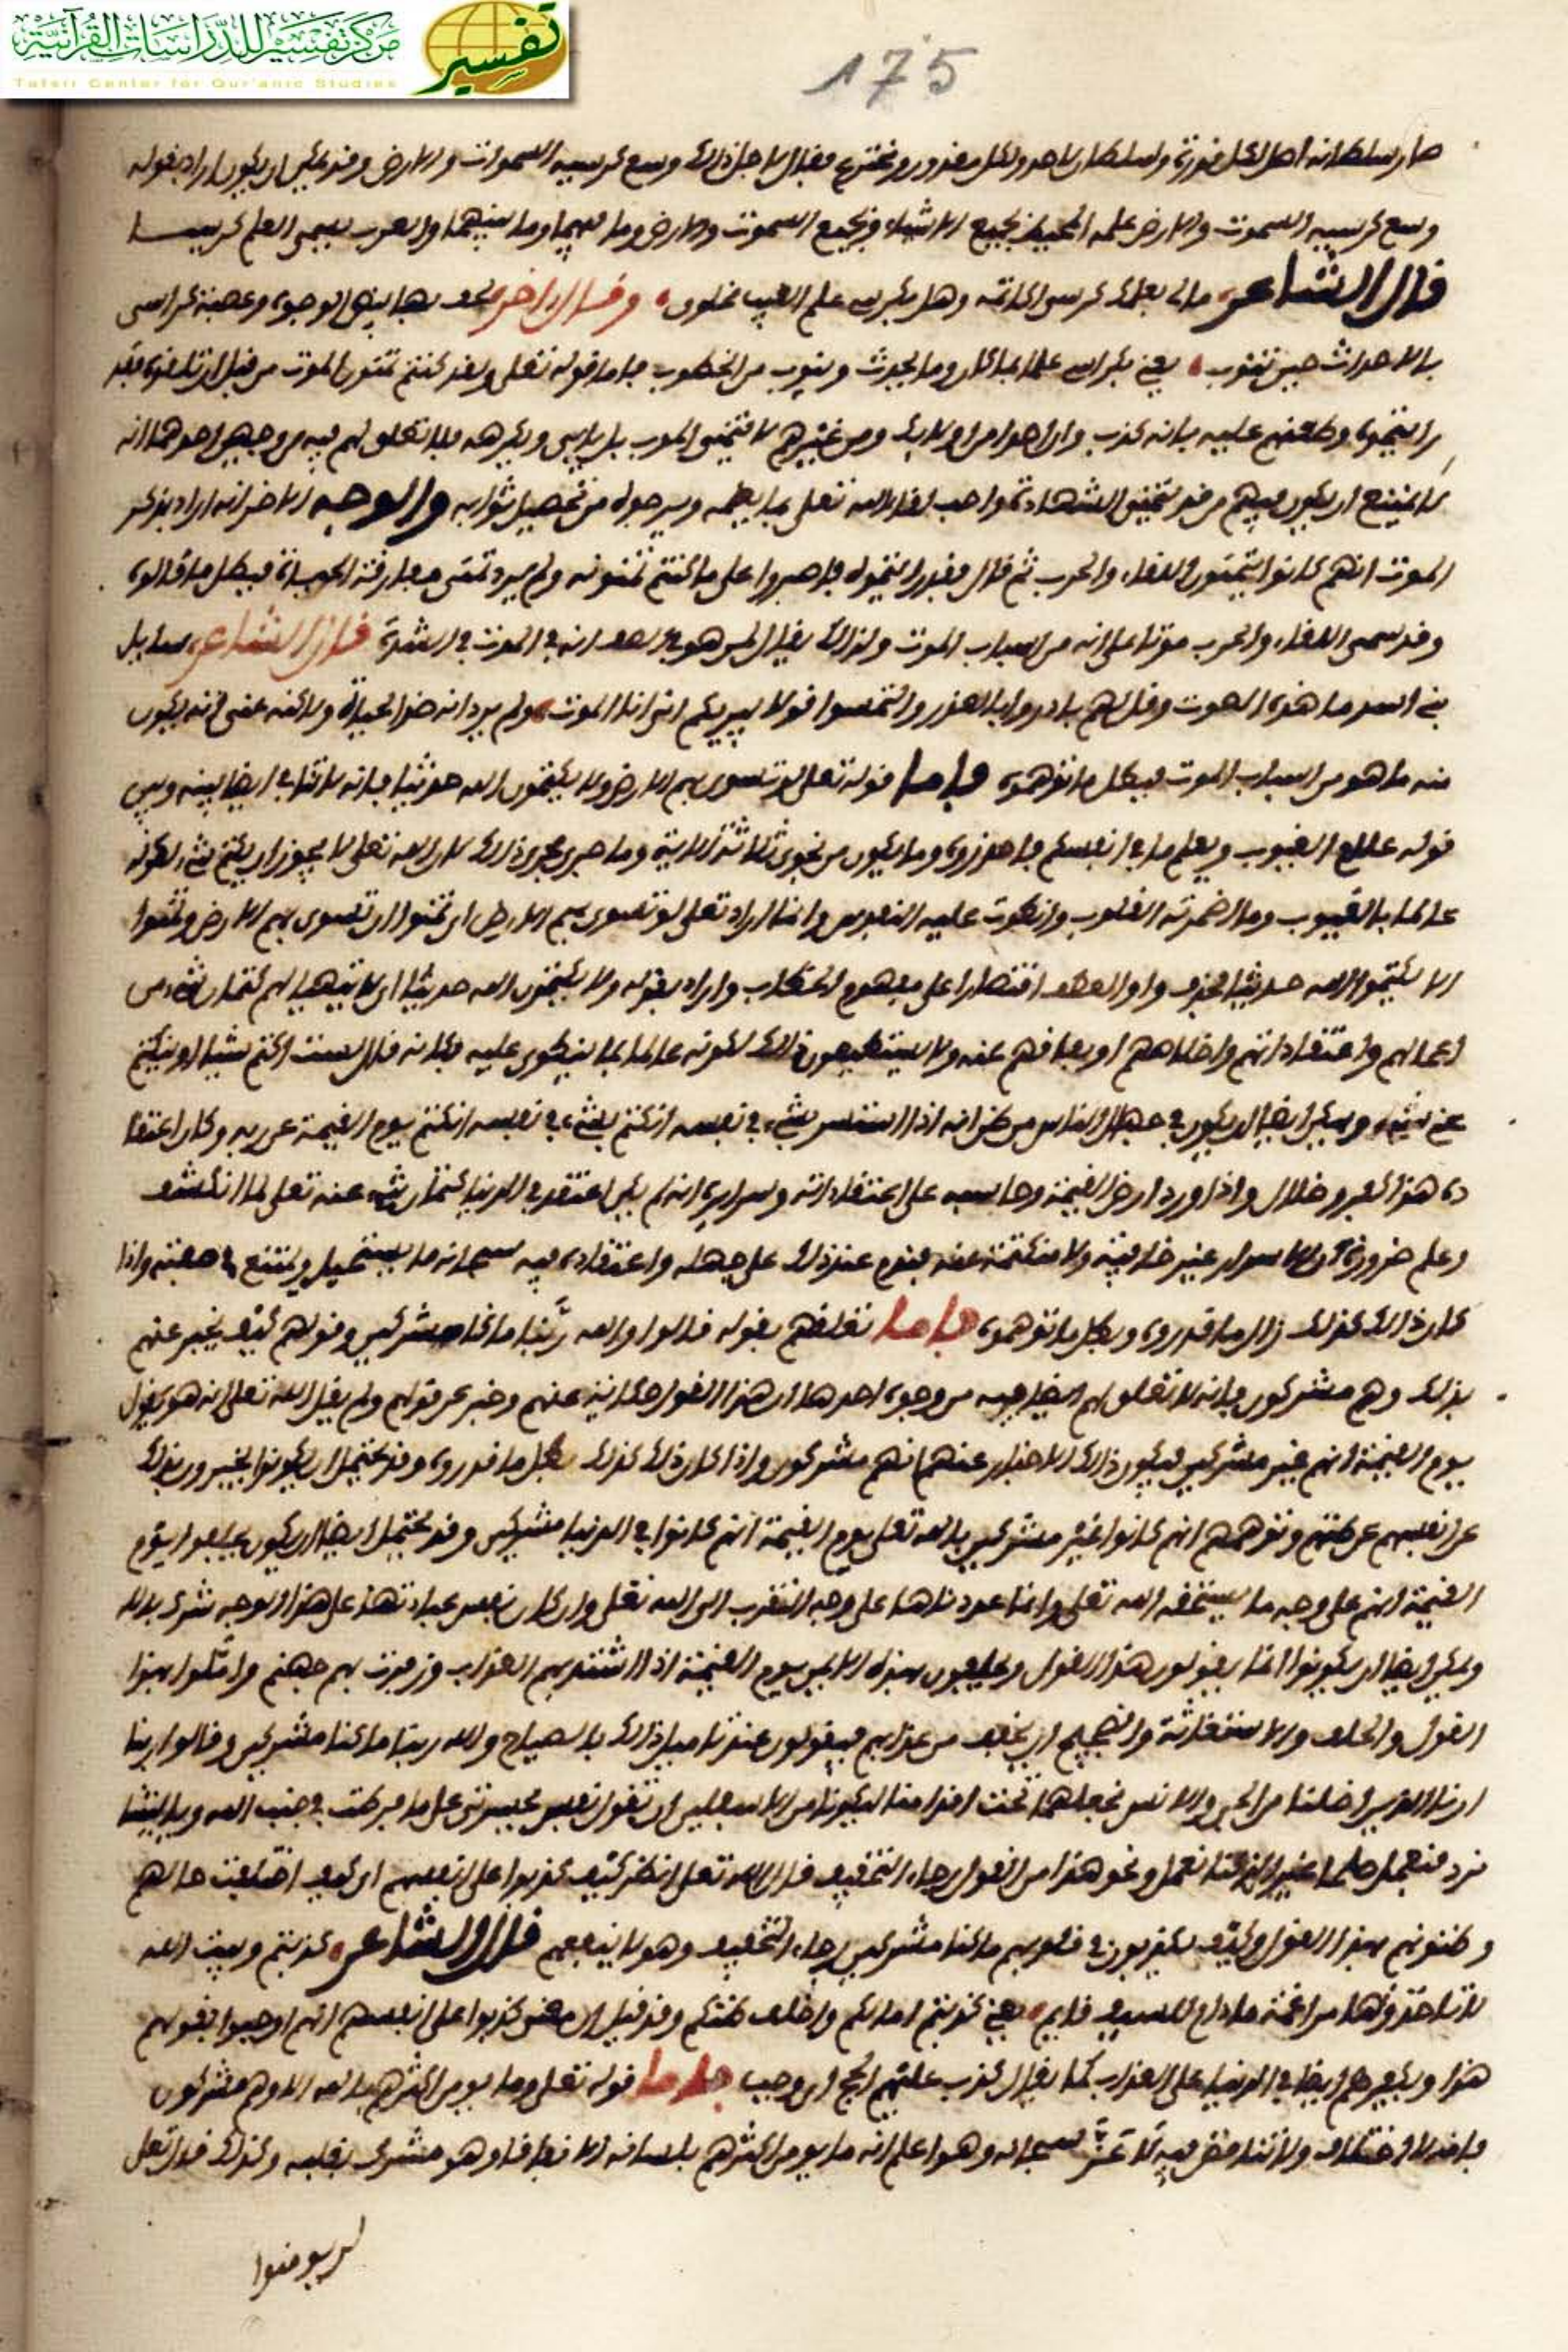 مركز تفسير للدراسات القرآنية
Tafsir Center for Qur'anic Studies
تفسير
175
صار سلطانه اصل لكل قدرة وسلطان لاحد ولكل مقدور ومخترع فقال لاجل ذلك وسع كرسيه السموات والارض وقد يمكن ان يكون اراد بقوله
وسع كرسيه السموت والارض علمه المحيط بجميع الاشياء وبجميع السموت والارض وما فيهما وما بينهما والعرب تسمي العلم كرسيا
قال الشاعر مالي بعلمك كرسي اكاتمه وهل بكرسي علم الغيب مخلوق وقال الاخر تحف بها بيض الوجوه وعصبة كراسي
بالاحداث حين تنوب يعني بكراسي علما بما كان وما يحدث وينوب من الخطوب فاما قوله تعلى ولقد كنتم تمنون الموت من قبل ان تلقوه فقد
رايتموه وطعنهم عليه بانه كذب وان احدا من اوليك ومن غيرهم لا يتمنى الموت بل يابى ويكرهه فلا تعلق لهم فيه من وجهين احدهما انه
لا يمتنع ان يكون فيهم من قد تمنى الشهادة واحب لقاء الله تعلى بما يطعمه ويرجوه من تحصيل ثوابه والوجه الاخر انه اراد بذكر
الموت انهم كانوا يتمنون اللقاء والحرب ثم قال فقد رايتموه فاصبروا على ما كنتم تمنونه ولم يرد تمنى مفارقة الحياة فبطل ما قالوه
وقد سمى اللقاء والحرب موتا على انه من اسباب الموت ولذلك يقال لمن هو في انه في الموت في الشدة قال الشاعر سايل
بني اسد ما هذه الصوت وقل لهم بادروا بالعذر والتمسوا قولا يبريكم اني انا الموت ولم يرد انه ضد الحياة ولاكنه عنى انه يكون
منه ما هو من اسباب الموت فبطل ما توهموه فاما قوله تعلى لو تسوى بهم الارض ولا يكتمون الله حديثا فانه لا تنافي ايضا بينه وبين
قوله علام الغيوب ويعلم ما في انفسكم فاحذروه وما يكون من نجوى ثلاثة الاية وما جرى مجرى ذلك لان الله تعلى لا يجوز ان يكتم شيء لكونه
عالما بالغيوب وما اضمرته القلوب وانطوت عليه النفوس وانما اراد تعلى لو تسوى بهم الارض اي تمنوا ان تسوى بهم الارض وتمنوا
الا يكتموا الله حديثا فحذف واو العطف اقتصارا على مفهوم الخطاب واراد بقوله ولا يكتمون الله حديثا اي لا يتهيا لهم كتمان شيء من
اعمالهم واعتقاداتهم واخلاصهم او نفاقهم عنه ولا يستطيعون ذلك لكونه عالما بما ينطوي عليه فكانه قال لست اكتم شيا او ينكتم
عني شيء ويمكن ايضا ان يكون في جهال الناس من ظن انه اذا استسر بشيء في نفسه انكتم بشيء في نفسه انكتم يوم القيمة عن ربه وكان اعتقا
ده هذا كفر وضلال واذا ورد ارض القيمة وحاسبه على اعتقاداته وسرايره انه لم يكن اعتقد في الدنيا كتمان شيء عنه تعلى لما انكشف
وعلم ضرورة ان الاسرار غير خافية ولا منكتمة عنه فندم عند ذلك على جهله واعتقاده فيه سبحانه ما يستحيل ويمتنع في صفته واذا
كان ذلك كذلك زال ما قدروه وبطل ما توهموه فاما تعلقهم بقوله قالوا والله ربنا ما كنا مشركين وقولهم كيف يخبر عنهم
بذلك وهم مشركون فانه لا تعلق لهم ايضا فيه من وجوه احدها ان هذا القول حكاية عنهم وخبر عن قولهم ولم يقل الله تعلى انه هو يقول
يوم القيمة انهم غير مشركين فيكون ذلك الاخبار عنهم انهم مشركون واذا كان ذلك كذلك بطل ما قدروه وقد يحتمل ان يكونوا يخبرون بذلك
عن انفسهم عن ظنهم وتوهمهم انهم كانوا غير مشركين بالله تعلى يوم القيمة انهم كانوا في الدنيا مشركين وقد يحتمل ايضا ان يكون يحلفوا يوم
القيمة انهم على وجه ما يستحقه الله تعلى وانما عبدناها على وجه التقرب الى الله تعلى وان كان نفس عبادتها على هذا الوجه شرك بالله
ويمكن ايضا ان يكونوا انما يقولون هذا القول ويحلفون بهذه الايمن يوم القيمة اذا اشتد بهم العذاب وزفرت بهم جهنم واملوا بهذا
القول والحلف والاستغاثة والضجيج ان يخفف من عذابهم فيقولون عندنا ميل ذلك بالصياح والله ربنا ما كنا مشركين وقالوا ربنا
ارنا اللذين اضلنا من الجن والانس نجعلهما تحت اقدامنا ليكونا من الاسفلين ان تقول نفس يحسرتى على ما فرطت في جنب الله ويا ليتنا
نرد فنعمل صلحا غير الذي كنا نعمل ونحو هذا من القول رجاء التخفيف قال الله تعلى انظر كيف كذبوا على انفسهم اي كيف اختلفت حالهم
وظنونهم بهذا القول وكيف يكذبون في قلوبهم ما كنا مشركين رجاء التخفيف وهو لا ينفعهم قال الشاعر كذبتم وبيت الله
لا تاخذونها مراغمة ما دام للسيف قايم يعني كذبتم امالكم واخلف ظنكم وقد قيل ان معنى كذبوا على انفسهم انهم اوجبوا بقولهم
هذا وبكفرهم ايضا في الدنيا على العذاب كما يقال كذب عليكم الحج اي وجب فاما قوله تعلى وما يومن اكثرهم بالله الا وهم مشركون
فانه لا اختلاف ولا تناقض فيه لانه عز سبحانه وهو اعلم انه ما يومن اكثرهم بلسانه الا نفاقا وهو مشرك بقلبه وكذلك قال تعلى
لم يومنوا